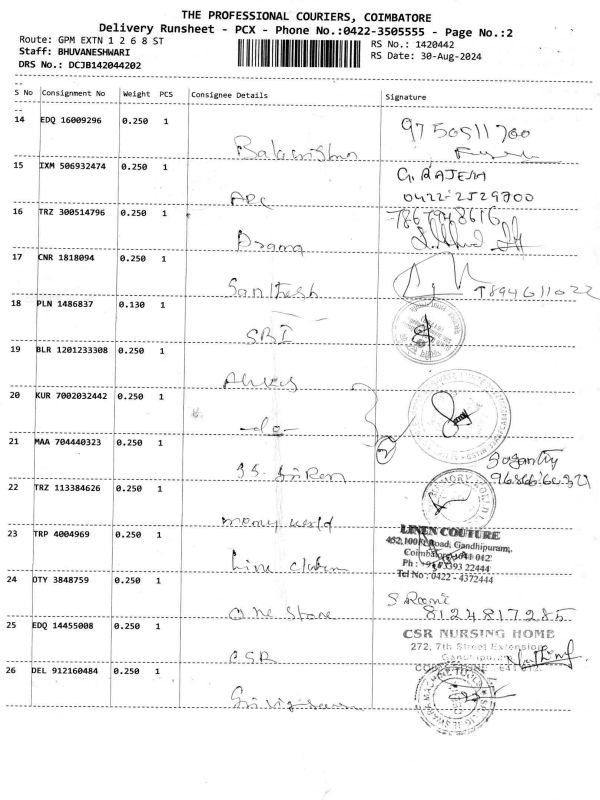 THE PROFESSIONAL COURIERS, COIMBATORE
Delivery Runsheet - PCX - Phone No.:0422-3505555 - Page No.:2
Route: GPM EXTN 1 2 6 8 ST
RS No.: 1420442
Staff: BHUVANESHWARI
RS Date: 30-Aug-2024
DRS No.: DCJB142044202
S No Consignment No Weight PCS Consignee Details Signature
14 EDQ 16009296 0.250 1 9750511700
Balakrishnan
15 IXM 506932474 0.250 1 G. RAJESH
ARC 0422-2529700
16 TRZ 300514796 0.250 1 7867948616
Drama
17 CNR 1818094 0.250 1
Santhosh 7894611022
18 PLN 1486837 0.130 1
SBI
19 BLR 1201233308 0.250 1
20 KUR 7002032442 0.250 1
-do-
21 MAA 704440323 0.250 1
22 TRZ 113384626 0.250 1
money world
23 TRP 4004969 0.250 1 LINEN COUTURE
Road, Gandhipuram,
Tel No : 0422 - 4372444
24 OTY 3848759 0.250 1
One Store 8124817285
25 EDQ 14455008 0.250 1 CSR NURSING HOME
272, 7th Street Extension
CSR
26 DEL 912160484 0.250 1